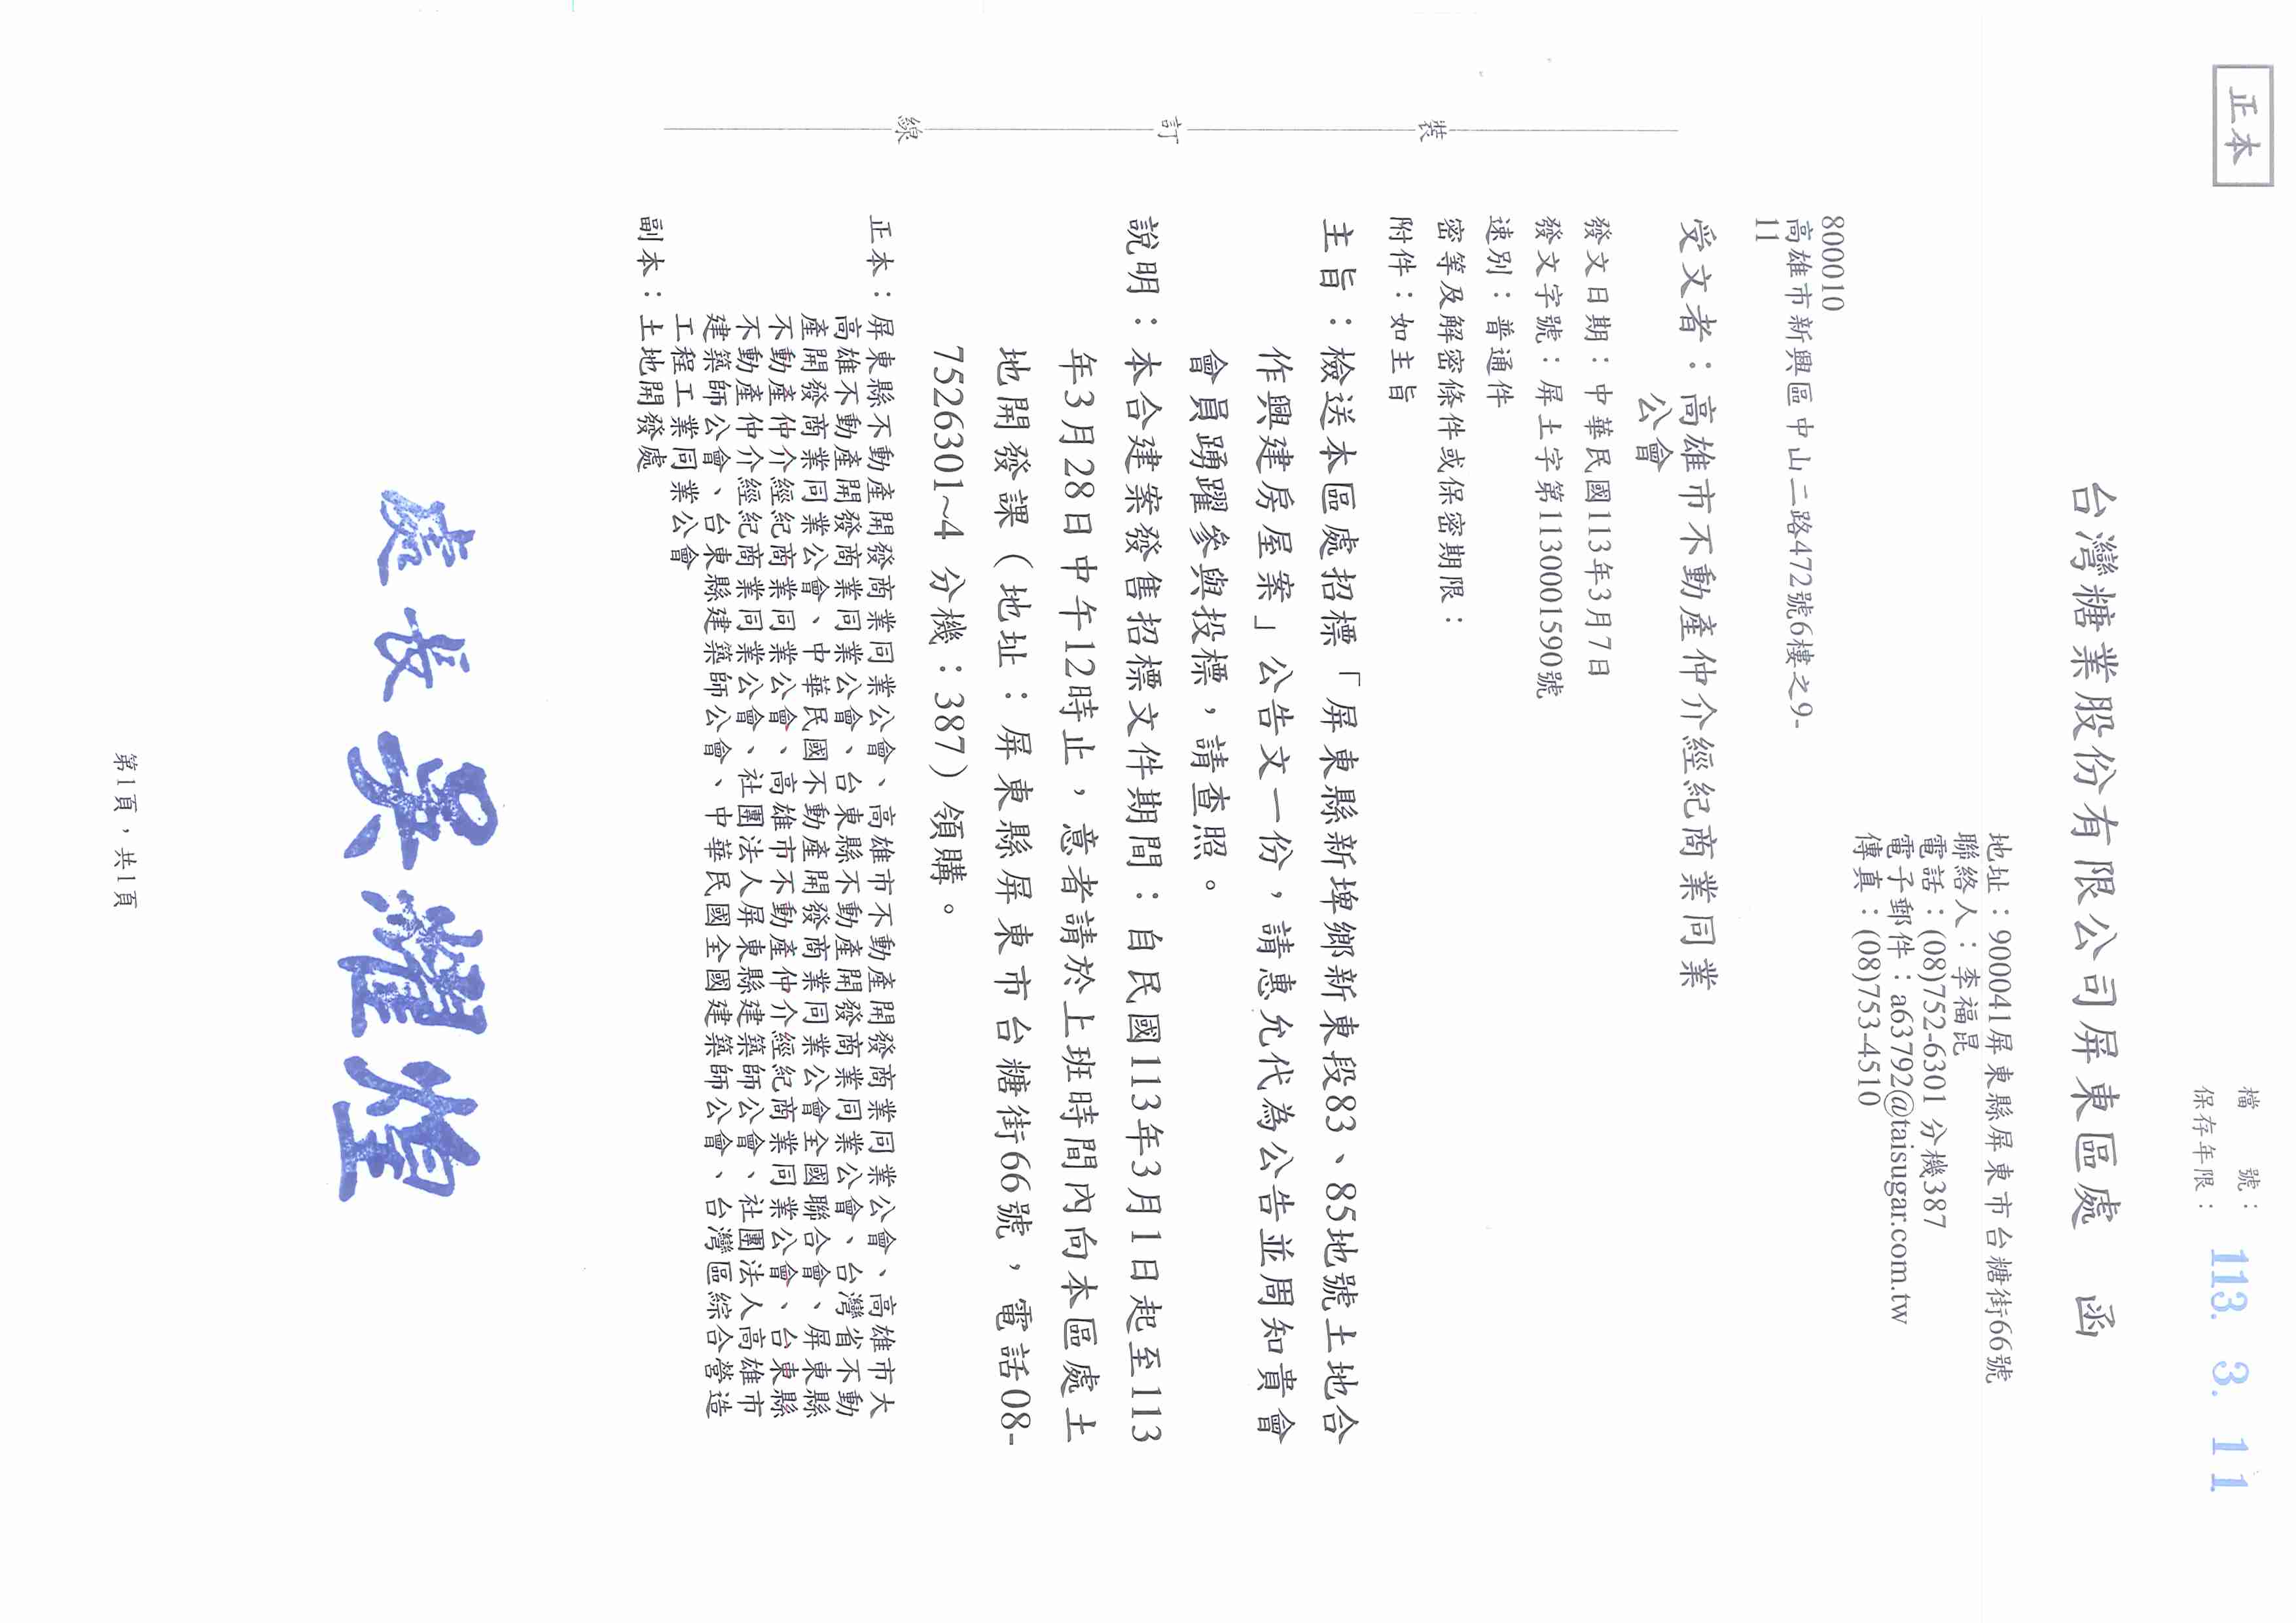 正本
檔　　號：
保存年限：
113. 3. 11
台灣糖業股份有限公司屏東區處　函
地址：900041屏東縣屏東市台糖街66號
聯絡人：李福昆
電話：(08)752-6301 分機387
電子郵件：a63792@taisugar.com.tw
傳真：(08)753-4510
800010
高雄市新興區中山二路472號6樓之9-
11
受文者：高雄市不動產仲介經紀商業同業
公會
發文日期：中華民國113年3月7日
發文字號：屏土字第1130001590號
速別：普通件
密等及解密條件或保密期限：
附件：如主旨
主旨：檢送本區處招標「屏東縣新埤鄉新東段83、85地號土地合
作興建房屋案」公告文一份，請惠允代為公告並周知貴會
會員踴躍參與投標，請查照。
說明：本合建案發售招標文件期間：自民國113年3月1日起至113
年3月28日中午12時止，意者請於上班時間內向本區處土
地開發課（地址：屏東縣屏東市台糖街66號，電話08-
7526301~4 分機：387）領購。
正本：屏東縣不動產開發商業同業公會、高雄市不動產開發商業同業公會、高雄市大
高雄不動產開發商業同業公會、台東縣不動產開發商業同業公會、台灣省不動
產開發商業同業公會、中華民國不動產開發商業同業公會全國聯合會、屏東縣
不動產仲介經紀商業同業公會、高雄市不動產仲介經紀商業同業公會、台東縣
不動產仲介經紀商業同業公會、社團法人屏東縣建築師公會、社團法人高雄市
建築師公會、台東縣建築師公會、中華民國全國建築師公會、台灣區綜合營造
工程工業同業公會
副本：土地開發處
裝
訂
線
處長吳耀煌
第1頁，共1頁